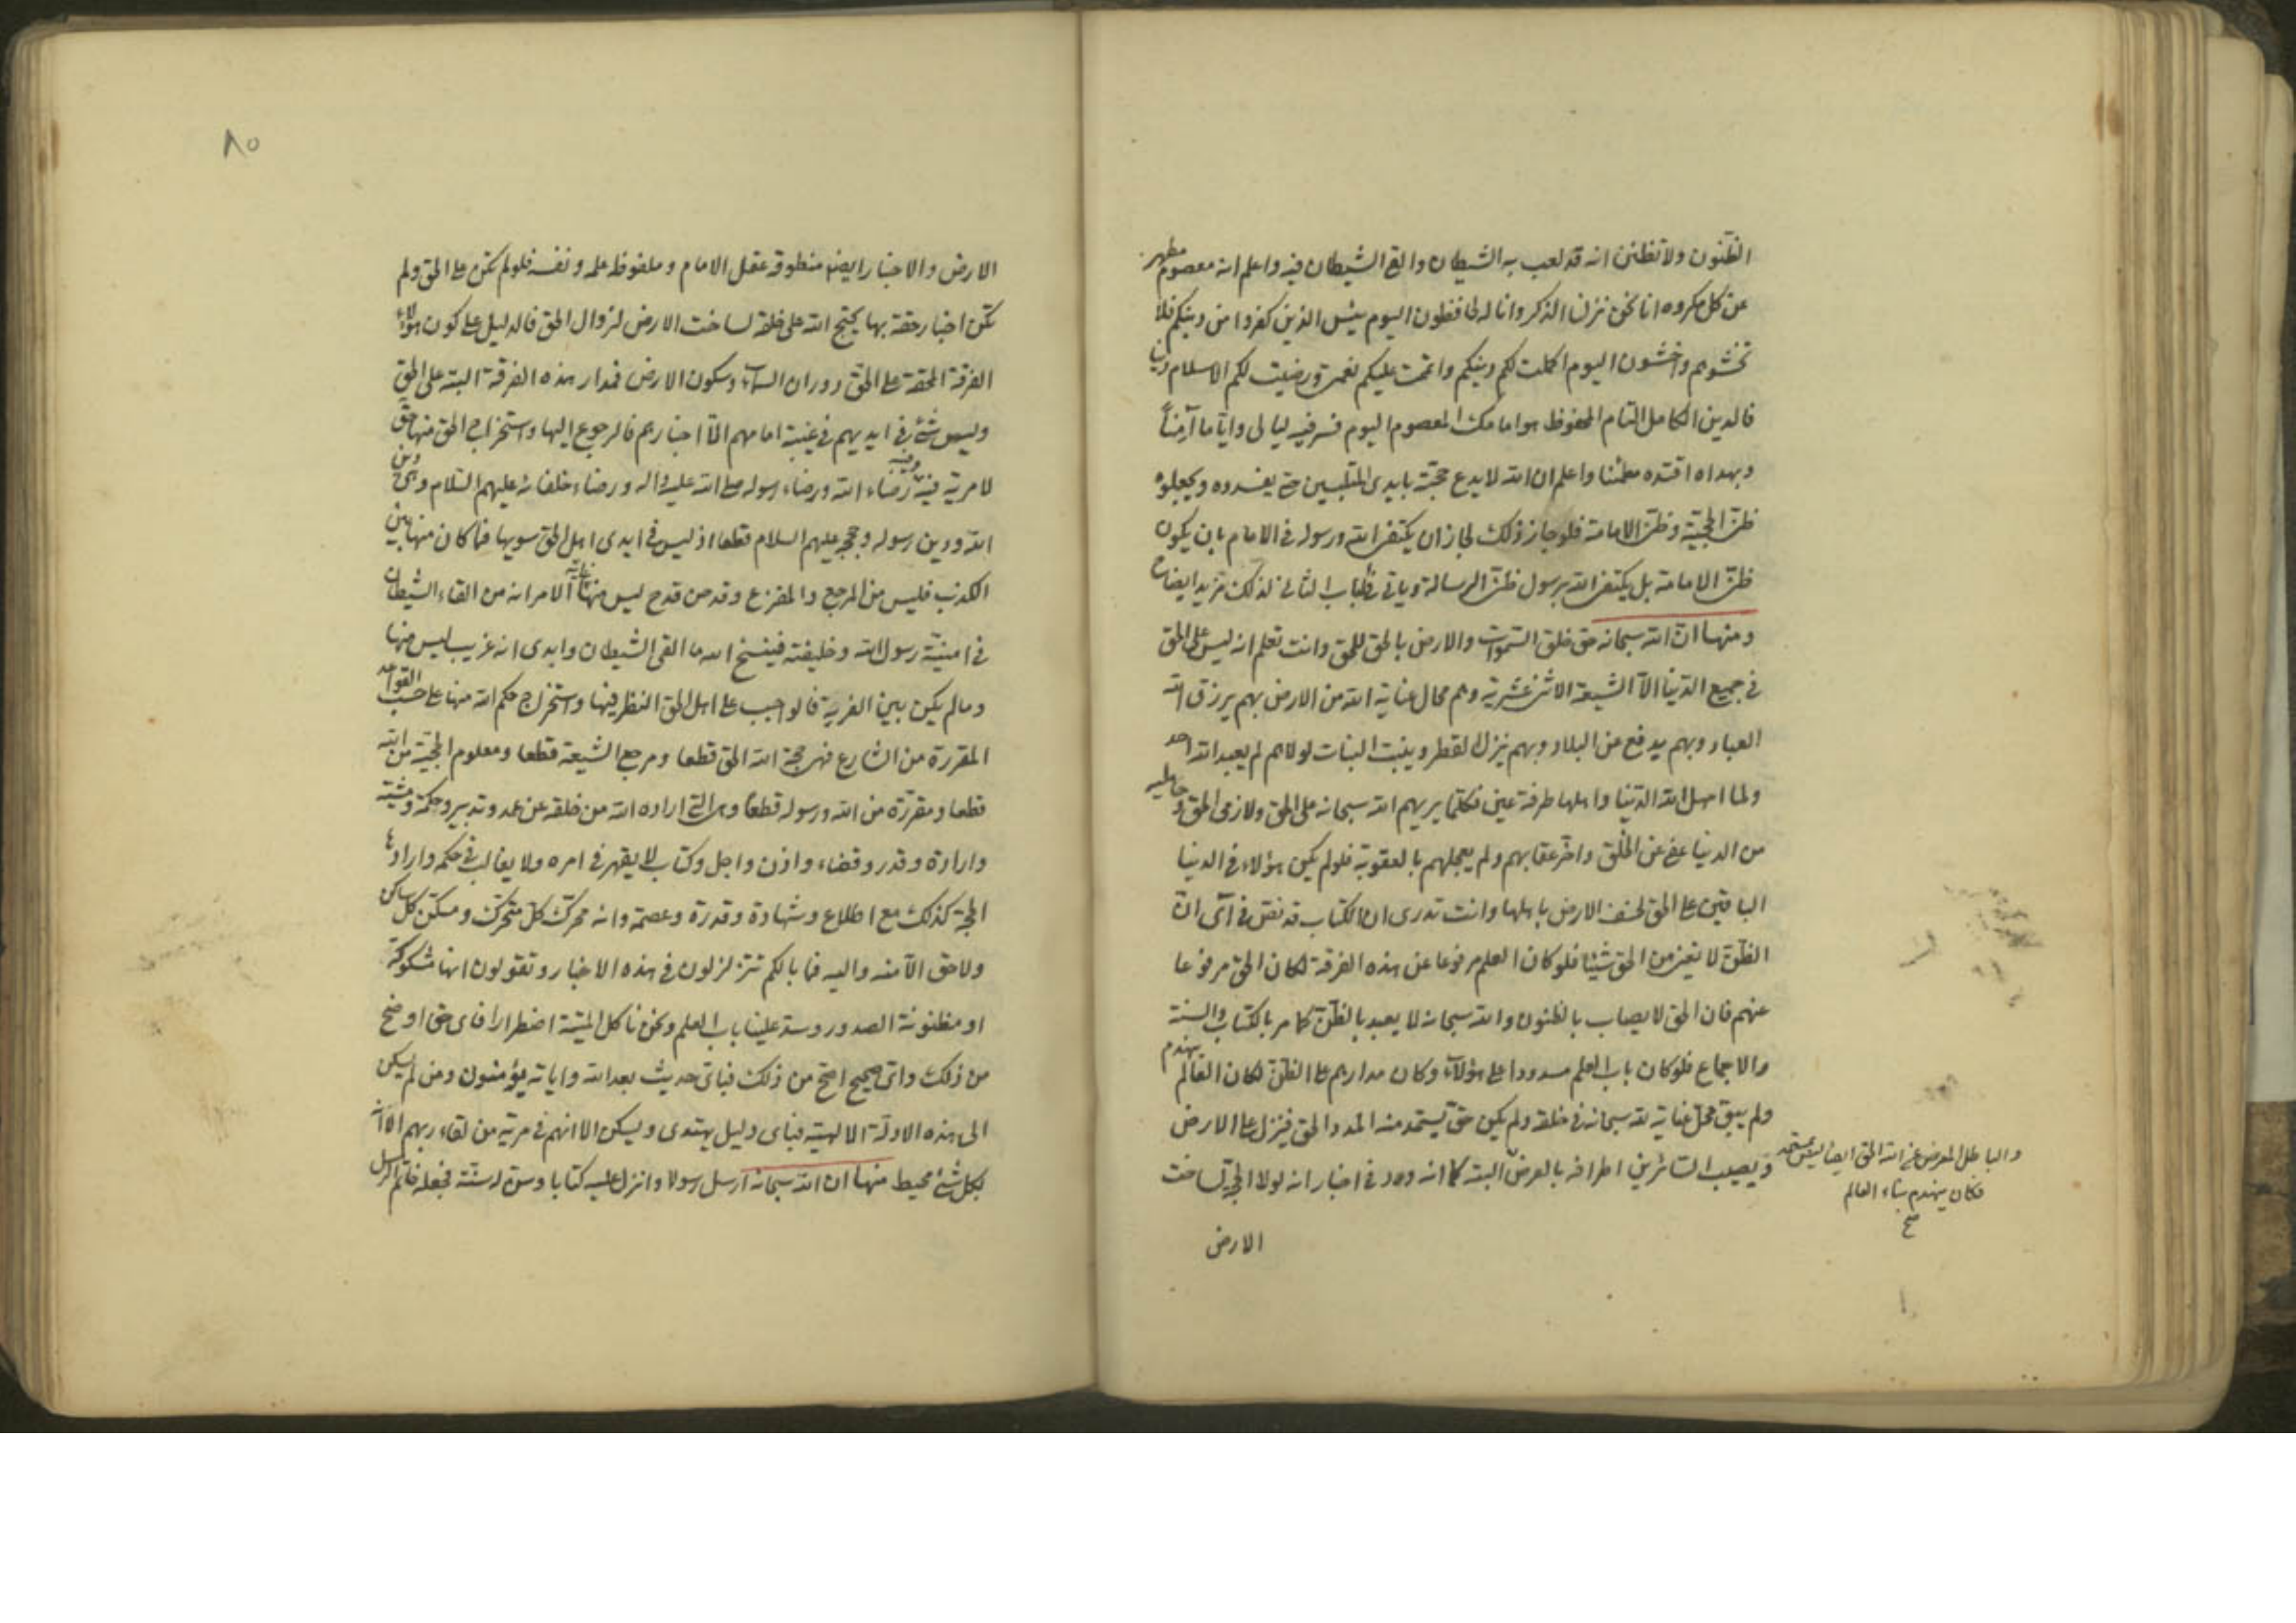 الظنون ولا تظنن انه قد لعب به الشيطان والقی الشيطان فيه واعلم انه معصوم مطهر
عن كل مكروه انا نحن نزلنا الذكر وانا له لحافظون اليوم يئس الذين كفروا من دينكم فلا
تخشوهم واخشون اليوم اكملت لكم دينكم واتممت عليكم نعمتی ورضيت لكم الاسلام دينا
فالدين الكامل التام المحفوظ هو امامك المعصوم اليوم فسر فيه ليالی واياما آمناً
وبهداه اقتده مطمئنا واعلم ان الله لا يدع حجته بايدی المتلبسين حتی يفسدوه ويجعلوه
ظنی الحجية وظنی الامامة فلو جاز ذلك لجاز ان يكتفی الله ورسوله فی الامام بان يكون
ظنی الامامة بل يكتفی الله برسول ظنی الرسالة ويأتی فی الباب الثانی لذلك مزيد ايضاح
ومنها ان الله سبحانه حق خلق السموات والارض بالحق للحق وانت تعلم انه ليس علی الحق
فی جميع الدنيا الا الشيعة الاثنی عشرية وهم محال عناية الله من الارض بهم يرزق الله
العباد وبهم يدفع عن البلاد وبهم ينزل القطر وينبت النبات لولاهم لم يعبد الله احد
ولما امهل الله الدنيا واهلها طرفة عين فكلما يريهم الله سبحانه علی الحق ولازمی الحق و حامليه
من الدنيا عفی عن الخلق واخر عقابهم ولم يعجلهم بالعقوبة فلو لم يكن هؤلاء فی الدنيا
الباقين علی الحق لخسف الارض باهلها وانت تدری ان الكتاب قد نص فی آی ان
الظن لا يغنی من الحق شيئا فلو كان العلم مرفوعا عن هذه الفرقة لكان الحق مرفوعا
عنهم فان الحق لا يصاب بالظنون والله سبحانه لا يعبد بالظن كما مر بالكتاب والسنة
والاجماع فلو كان باب العلم مسدودا علی هؤلاء وكان مدارهم علی الظن لكان العالم ينهدم
ولم يبق محل عناية لله سبحانه فی خلقه ولم يكن حق يستمد منه المدد الحق فينزل علی الارض
ويصيب السائرين اطرافه بالعرض البتة كما انه ورد فی اخبار انه لولا الحجة لساخت
والباطل المعرض عن الله الحق ايضا ليس بمستمد
فكان ينهدم بناء العالم
صح
الارض
٨٥
الارض والاخبار ايضا منطوقة عقل الامام و ملفوظ علمه ونفسه فلو لم تكن علی الحق ولم
تكن اخبار حقة بها يحتج الله علی خلقه لساخت الارض لزوال الحق فالدليل علی كون هؤلاء
الفرقة المحقة علی الحق دوران السماء وسكون الارض فمدار هذه الفرقة البتة علی الحق
وليس شئ فی ايديهم فی غيبة امامهم الا اخبارهم فالرجوع اليها واستخراج الحق منها حق
لا مرية فيه وفيه رضاء الله ورضاء رسوله صلی الله عليه واله ورضاء خلفائه عليهم السلام وهی دين
الله ودين رسوله وحججه عليهم السلام قطعا اذ ليس فی ايدی اهل الحق سويها فما كان منها بين
الكذب فليس من المرجع والمفزع وقدح من قدح ليس منها غاية الامر انه من القاء الشيطان
فی امنية رسول الله وخليفته فينسخ الله ما القی الشيطان وابدی انه غريب ليس منها
ومالم يكن بين الفرية فالواجب علی اهل الحق النظر فيها واستخراج حكم الله منها علی حسب القواعد
المقررة من الشارع فهی حجة الله الحق قطعا ومرجع الشيعة قطعا ومعلوم الحجية من الله
قطعا ومقررة من الله ورسوله قطعا وهی التی اراده الله من خلقه عن عمد وتدبير وحكمة ومشية
وارادة وقدر وقضاء واذن واجل وكتاب لا يقهر فی امره ولا يغالب فی حكمه وارادها
الحجة كذلك مع اطلاع وشهادة وقدرة وعصمة وانه محرك كل متحرك ومسكن كل ساكن
ولا حق الا منه واليه فما بالكم تتزلزلون فی هذه الاخبار وتقولون انها مشكوكة
او مظنونة الصدور وسد علينا باب العلم ونحن نأكل الميتة اضطرارا فای حق اوضح
من ذلك وای صحيح اصح من ذلك فبای حديث بعد الله واياته يؤمنون ومن لم يسكن
الی هذه الادلة الالهية فبای دليل يهتدی ويسكن الا انهم فی مرية من لقاء ربهم الا انه
بكل شئ محيط منها ان الله سبحانه ارسل رسولا وانزل عليه كتابا وسن له سنة فجعله خاتم الرسل